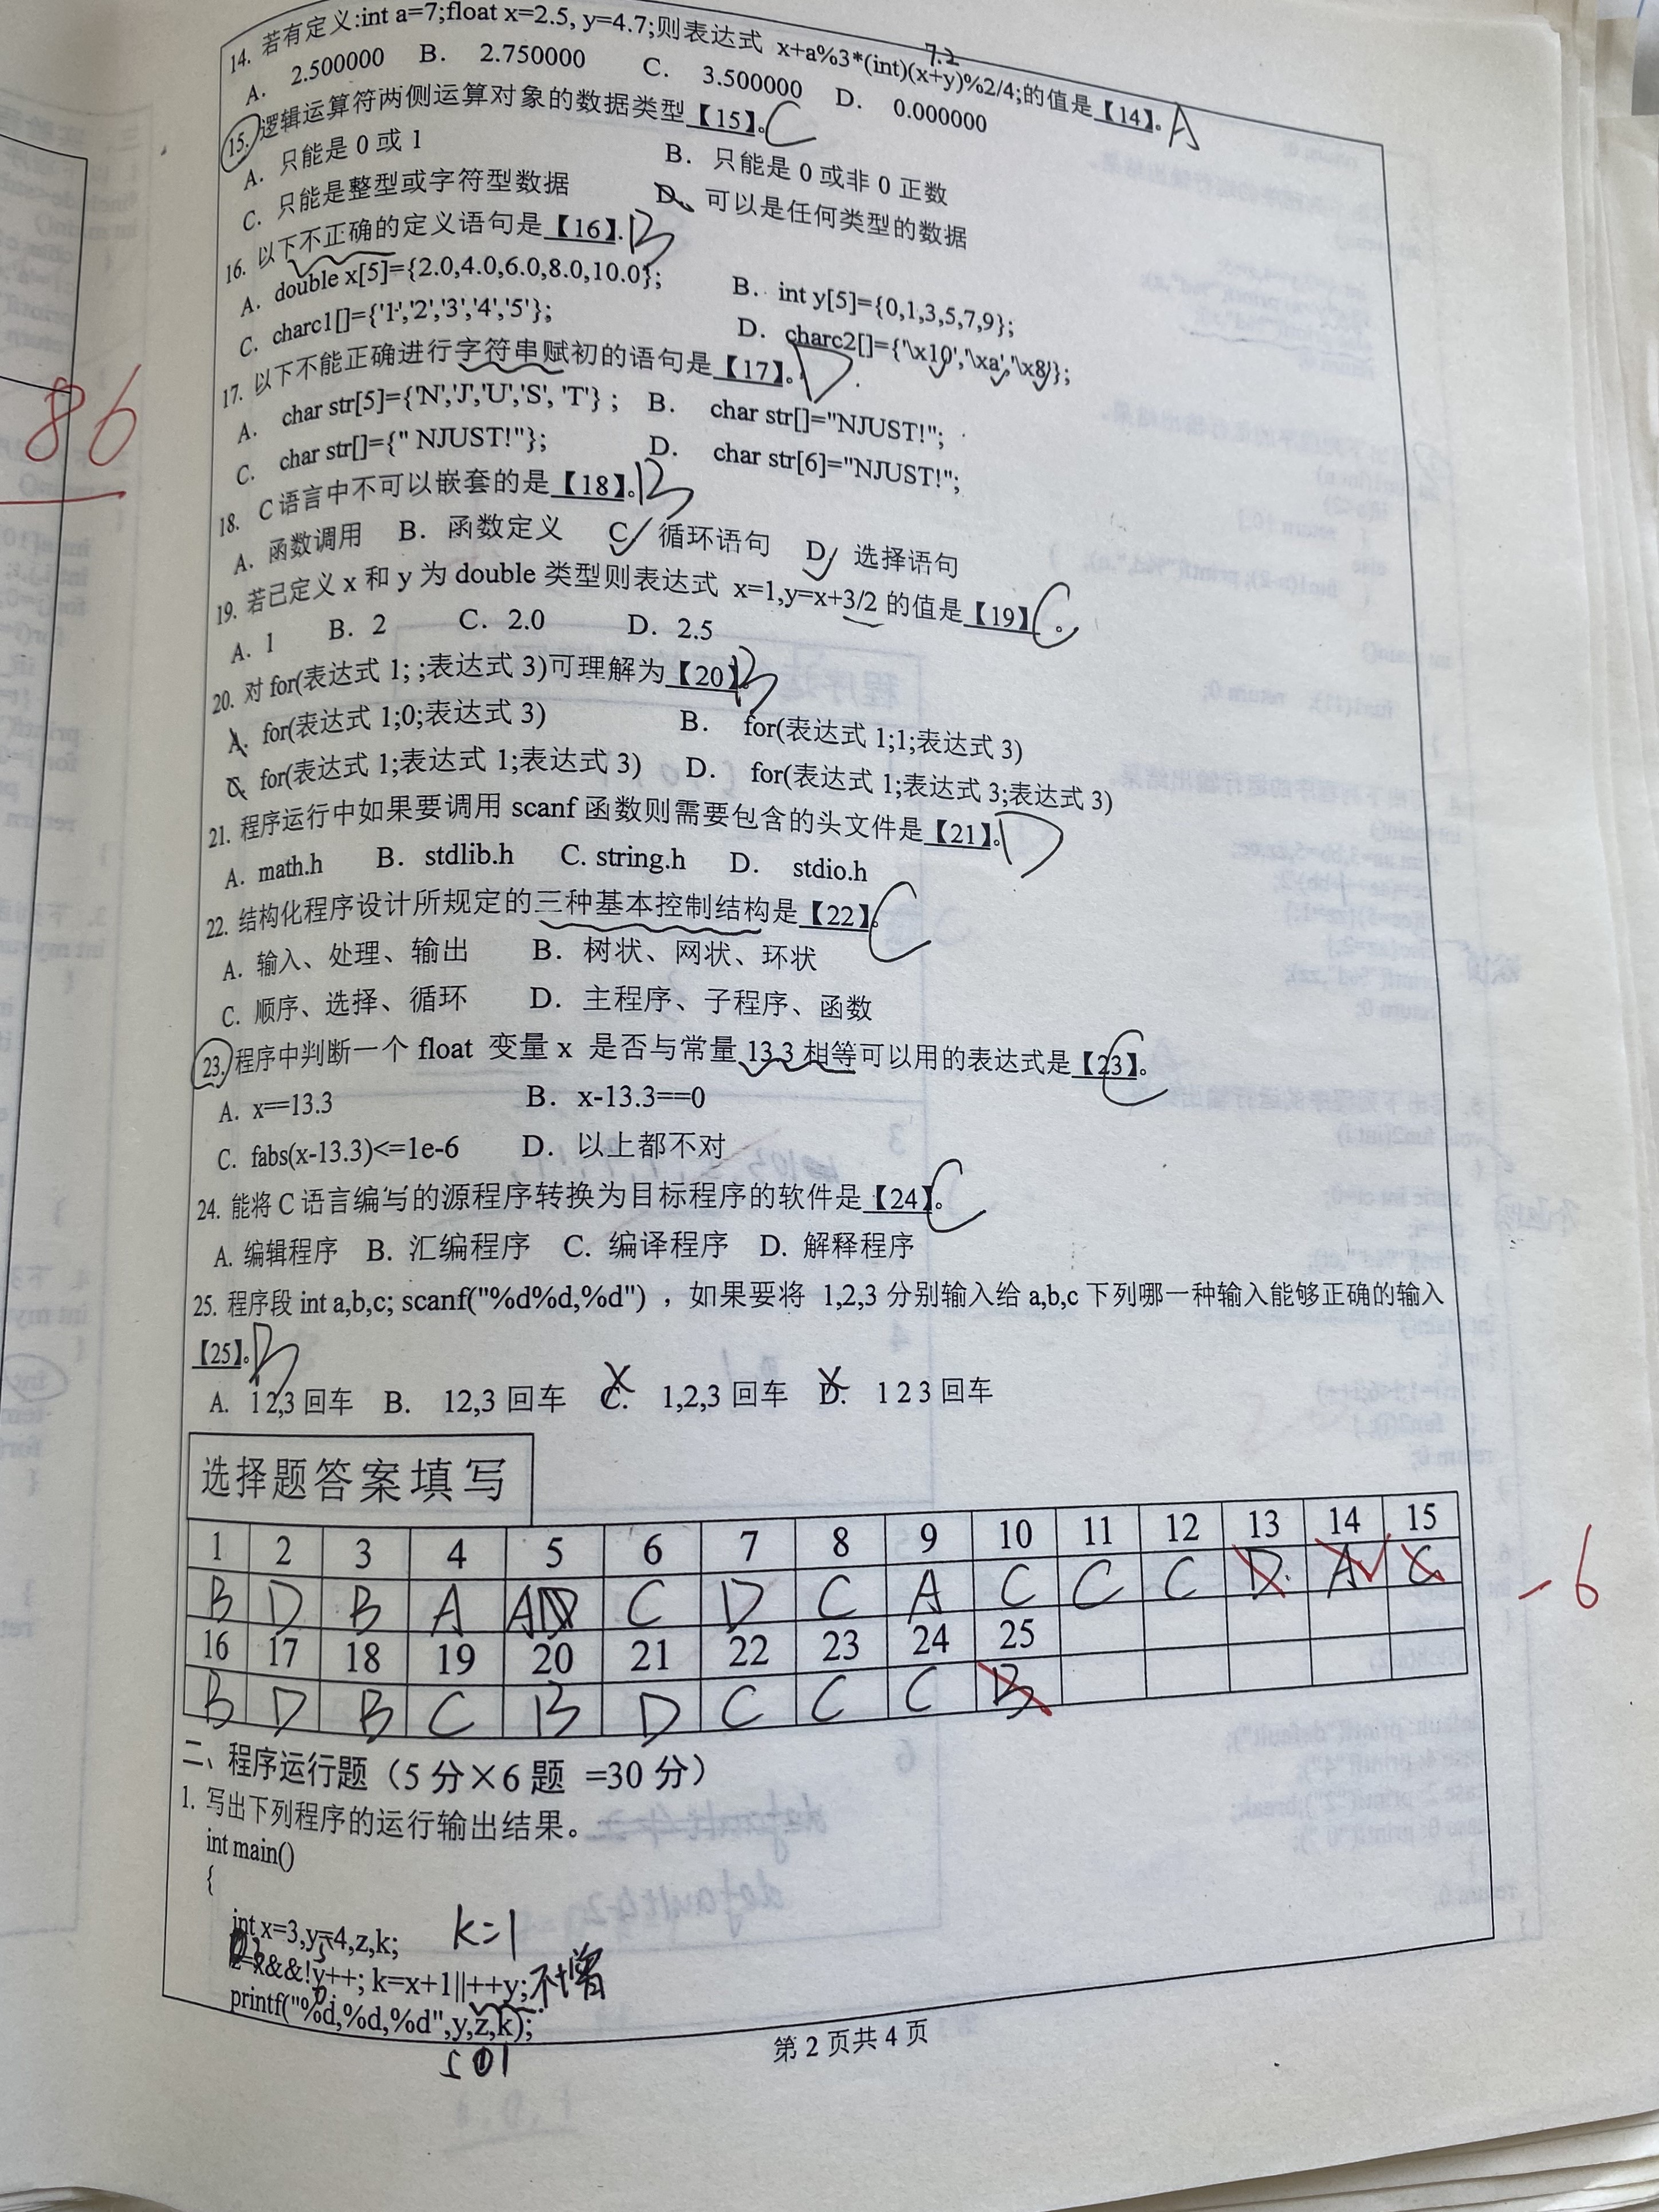 14. 若有定义:int a=7;float x=2.5, y=4.7;则表达式 x+a%3*(int)(x+y)%2/4;的值是【14】。A
7.2
A. 2.500000 B. 2.750000 C. 3.500000 D. 0.000000
15. 逻辑运算符两侧运算对象的数据类型【15】。C
A. 只能是 0 或 1 B. 只能是 0 或非 0 正数
C. 只能是整型或字符型数据 D. 可以是任何类型的数据
16. 以下不正确的定义语句是【16】. B
A. double x[5]={2.0,4.0,6.0,8.0,10.0}; B. int y[5]={0,1,3,5,7,9};
C. charc1[]={'1','2','3','4','5'}; D. charc2[]={'\x10','\xa','\x8'};
17. 以下不能正确进行字符串赋初的语句是【17】。D
A. char str[5]={'N','J','U','S', 'T'} ; B. char str[]="NJUST!";
C. char str[]={" NJUST!"}; D. char str[6]="NJUST!";
18. C 语言中不可以嵌套的是【18】。B
A. 函数调用 B. 函数定义 C 循环语句 D 选择语句
19. 若已定义 x 和 y 为 double 类型则表达式 x=1,y=x+3/2 的值是【19】。C
A. 1 B. 2 C. 2.0 D. 2.5
20. 对 for(表达式 1; ;表达式 3)可理解为【20】。B
A. for(表达式 1;0;表达式 3) B. for(表达式 1;1;表达式 3)
C for(表达式 1;表达式 1;表达式 3) D. for(表达式 1;表达式 3;表达式 3)
21. 程序运行中如果要调用 scanf 函数则需要包含的头文件是【21】。D
A. math.h B. stdlib.h C. string.h D. stdio.h
22. 结构化程序设计所规定的三种基本控制结构是【22】。C
A. 输入、处理、输出 B. 树状、网状、环状
C. 顺序、选择、循环 D. 主程序、子程序、函数
23. 程序中判断一个 float 变量 x 是否与常量 13.3 相等可以用的表达式是【23】。C
A. x==13.3 B. x-13.3==0
C. fabs(x-13.3)<=1e-6 D. 以上都不对
24. 能将 C 语言编写的源程序转换为目标程序的软件是【24】。C
A. 编辑程序 B. 汇编程序 C. 编译程序 D. 解释程序
25. 程序段 int a,b,c; scanf("%d%d,%d") ，如果要将 1,2,3 分别输入给 a,b,c 下列哪一种输入能够正确的输入
【25】。B
A. 1 2,3 回车 B. 12,3 回车 C. 1,2,3 回车 D. 1 2 3 回车
86
选择题答案填写
1 2 3 4 5 6 7 8 9 10 11 12 13 14 15
B D B A A C D C A C C C D A C
-6
16 17 18 19 20 21 22 23 24 25
B D B C B D C C C B
二、程序运行题（5 分×6 题 =30 分）
1. 写出下列程序的运行输出结果。
int main()
{
k=1
int x=3,y=4,z,k;
&&!y++; k=x+1||++y; 不增
printf("%d,%d,%d",y,z,k);
5 0 1
第 2 页共 4 页